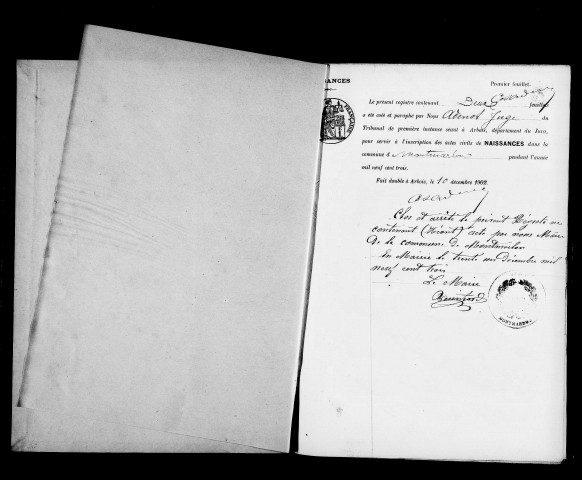 NAISSANCES
Premier feuillet.
Le présent registre contenant Deux feuillets
a été coté et paraphé par Nous Juge du
Tribunal de première instance séant à Arbois, département du Jura,
pour servir à l'inscription des actes civils de NAISSANCES dans la
commune d pendant l'année
mil neuf cent trois.
Fait double à Arbois, le 10 décembre 1902.
Clos et arrêté le présent Registre ne
contenant (Néant) acte par nous Maire
De la commune de
En Mairie le trente un Décembre mil
neuf cent trois
Le Maire